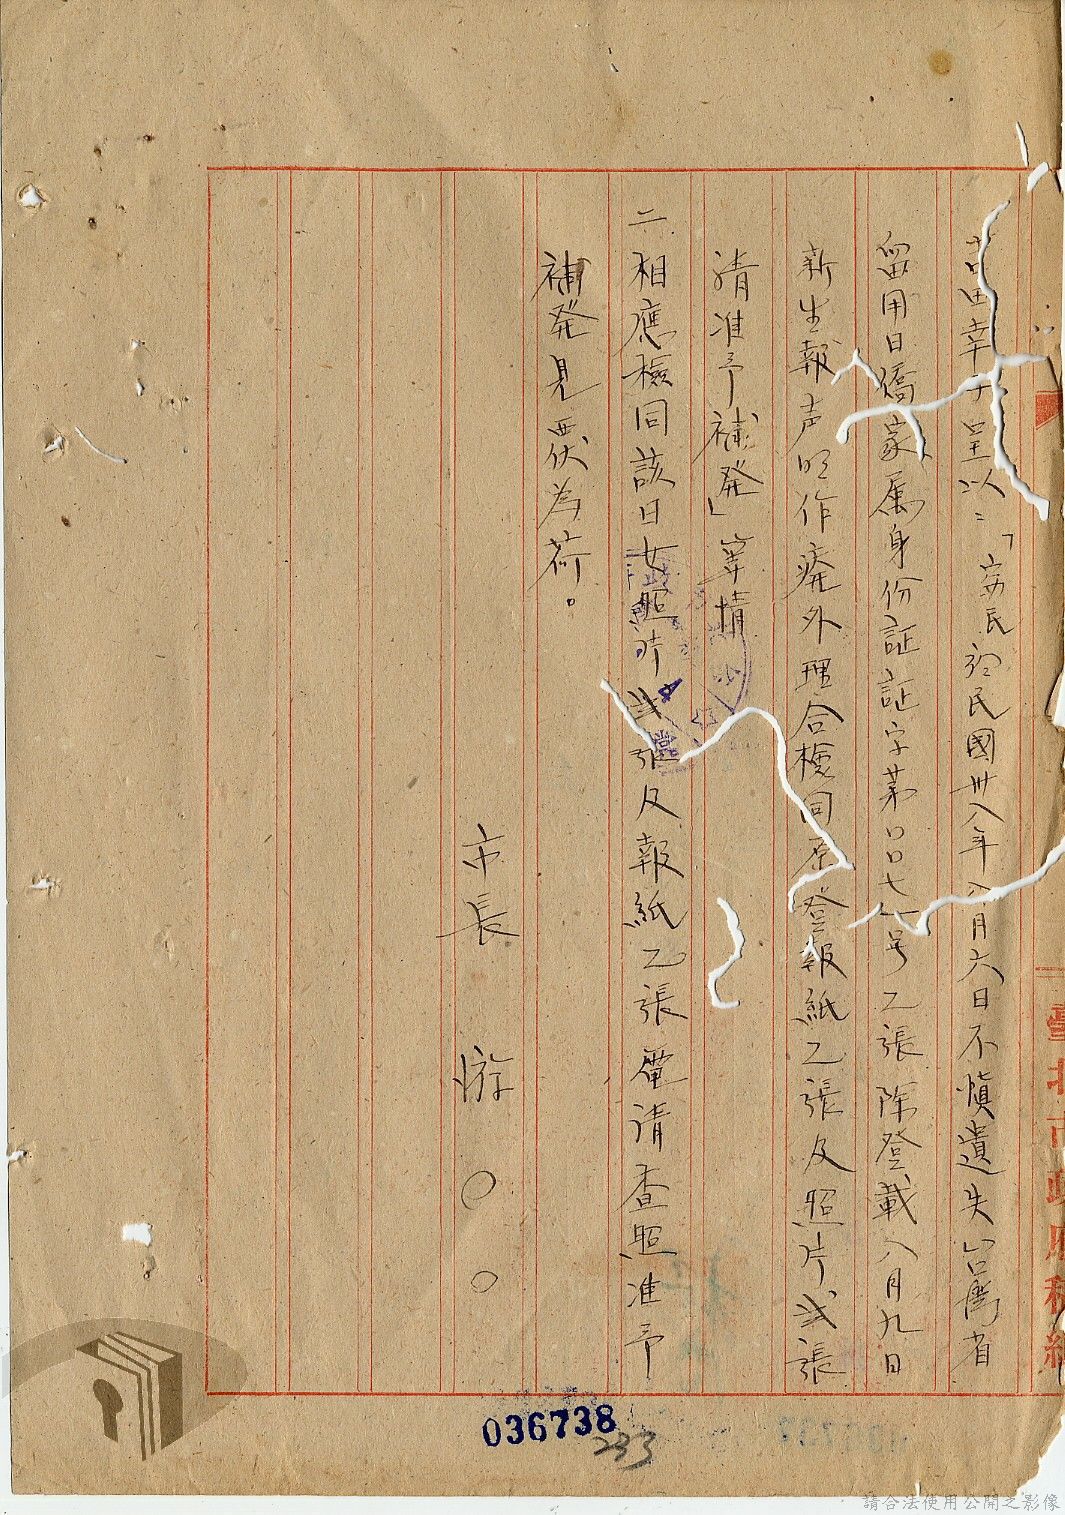 吉田幸子呈以：「竊民於民國卅八年八月六日不慎遺失台灣省
留用日僑家属身份証証字第〇〇七八号乙張除登載八月九日
新生報声明作廃外理合檢同原登報紙乙張及照片弍張
請准予補発」等情
二、相應檢同該日女照片弍張及報紙乙張電請查照准予
補発見覆為荷。
市長 游〇〇
臺北市政府稿紙
036738
233
請合法使用公開之影像